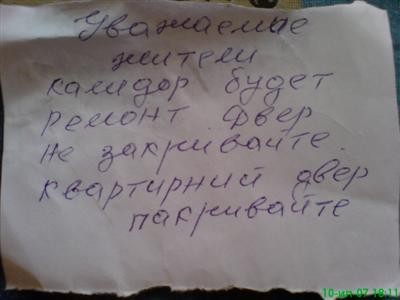 Уважаемые
жители
калидор будет
ремонт фвер
не закривайте.
квартирний двер
пакривайте
10-ил-07 18:11